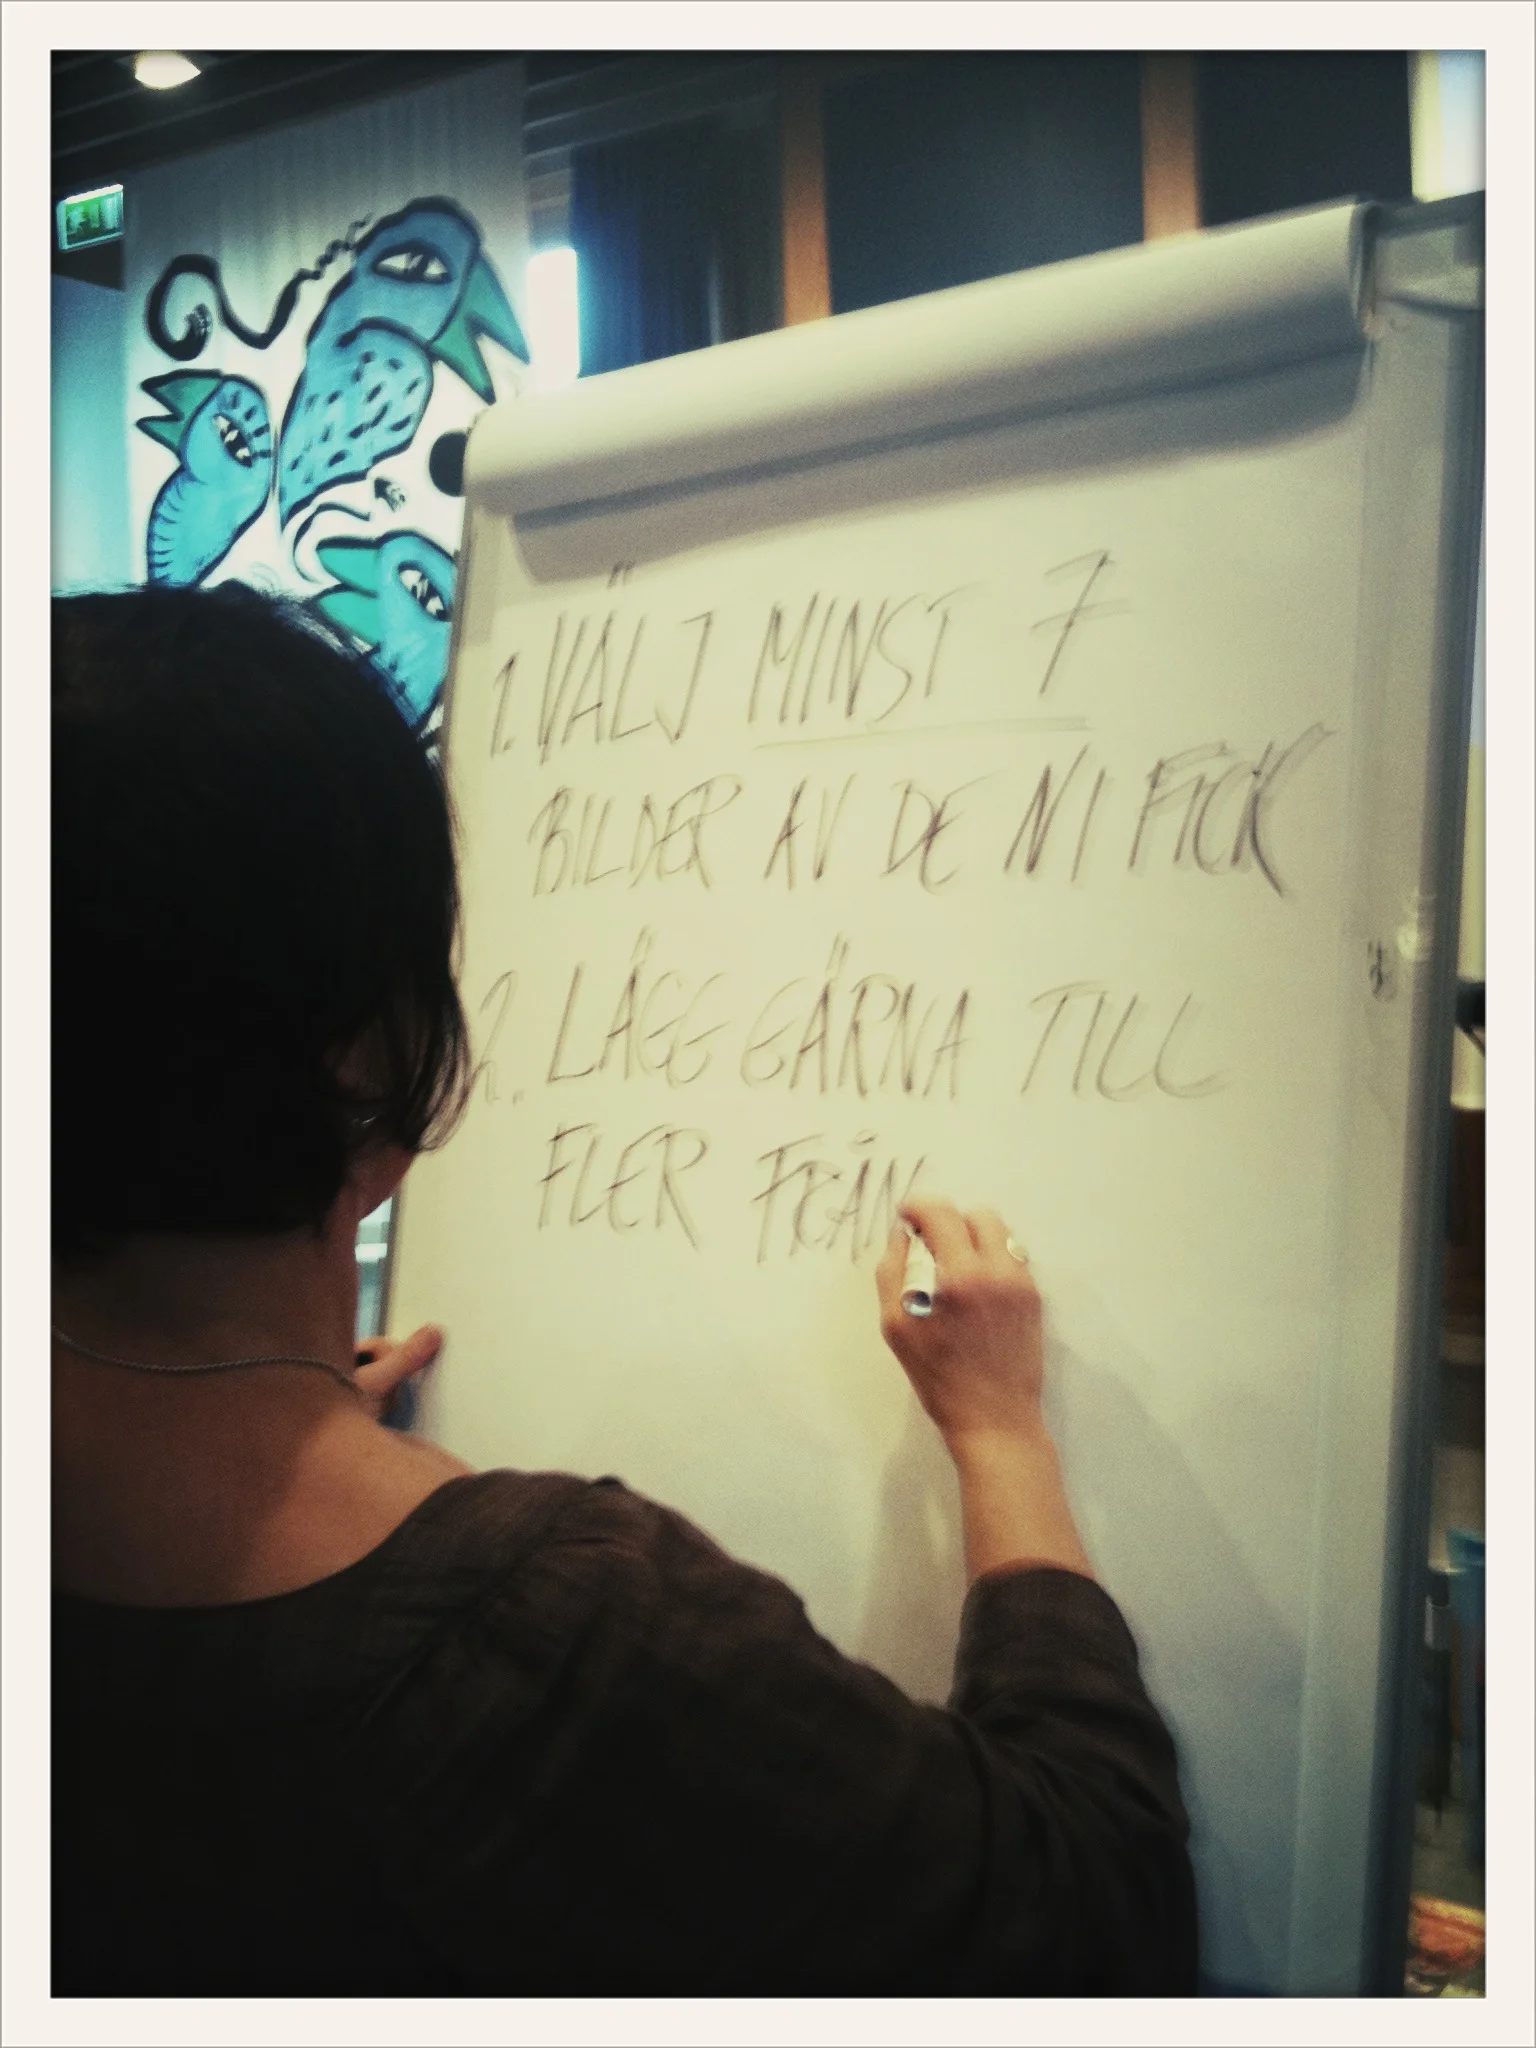 1. VÄLJ MINST 7
BILDER AV DE NI FICK
2. LÄGG GÄRNA TILL
FLER FRÅN